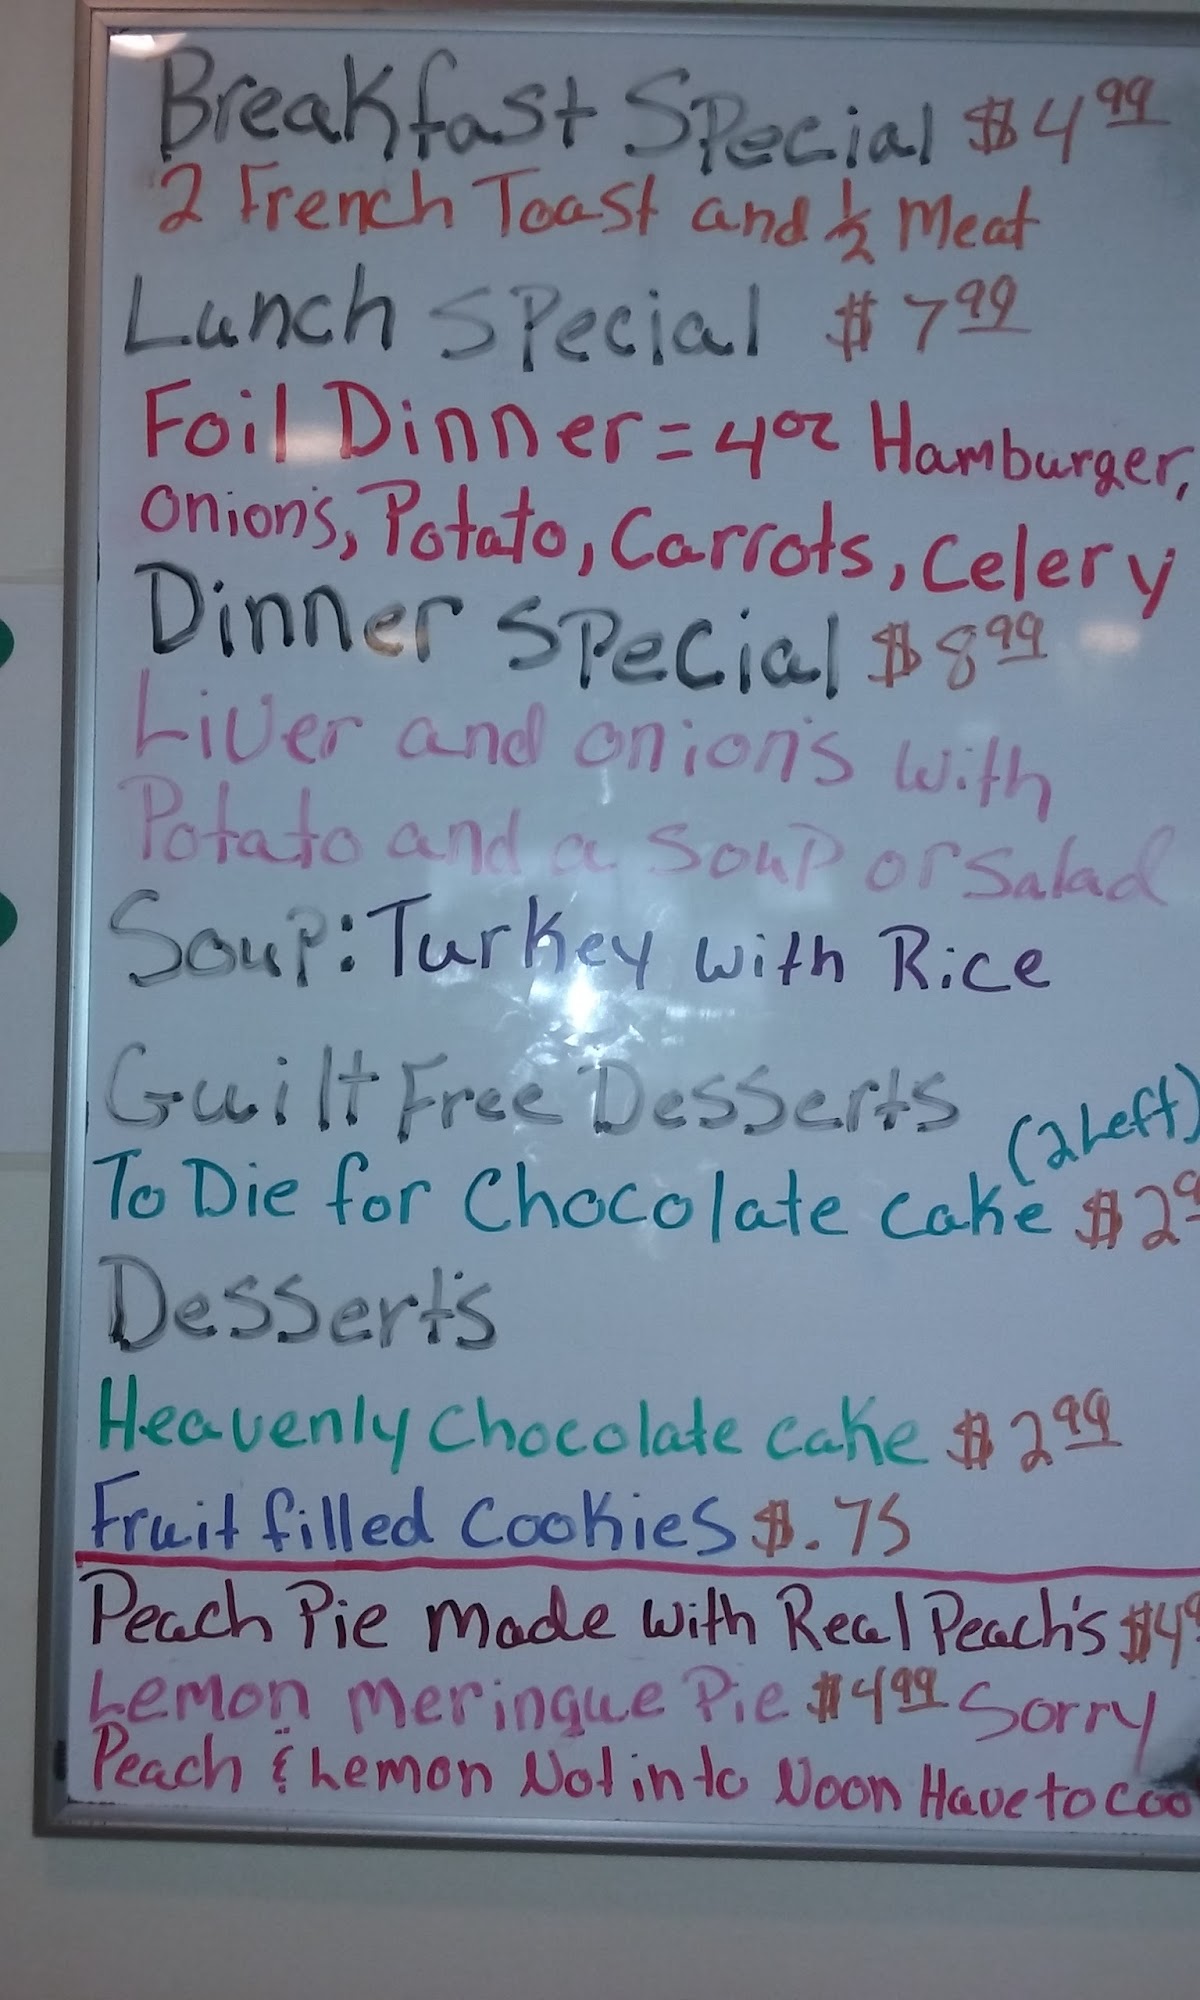 Breakfast Special $4.99
2 French Toast and 1/2 Meat
Lunch Special $7.99
Foil Dinner = 4oz Hamburger,
Onion's, Potato, Carrots, Celery
Dinner Special $8.99
Liver and onion's with
Potato and a Soup or Salad
Soup: Turkey with Rice
Guilt Free Desserts
(2 Left)
To Die for Chocolate Cake $2
Dessert's
Heavenly Chocolate Cake $2.99
Fruit filled Cookies $.75
Peach Pie made with Real Peach's $4
Lemon Meringue Pie $4.99 Sorry
Peach & Lemon Not in to Noon Have to